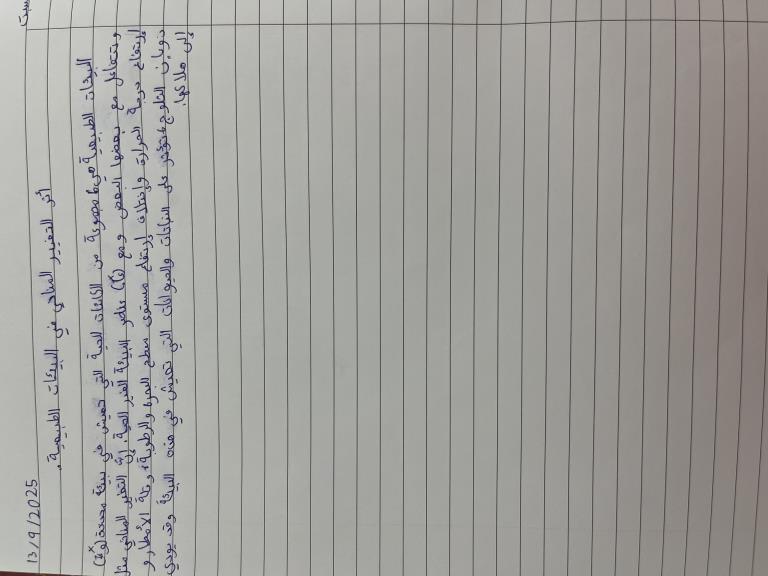 السبت
13/9/2025
أثر التغيير المناخي في البيئات الطبيعية.
البيئات الطبيعية هي مجموعة من الكائنات الحية التي تعيش في بيئة محددة
وتتفاعل مع بعضها البعض ومع عناصر البيئة الغير الحية. إن التغير المناخي مثل
إرتفاع درجة الحرارة وزيادة إرتفاع مستوى سطح البحر والرطوبة، وقلة الأمطار و
ذوبان الثلوج، تؤثر على النباتات والحيوانات التي تعيش في هذه البيئة وقد يودي
إلى هلاكها.